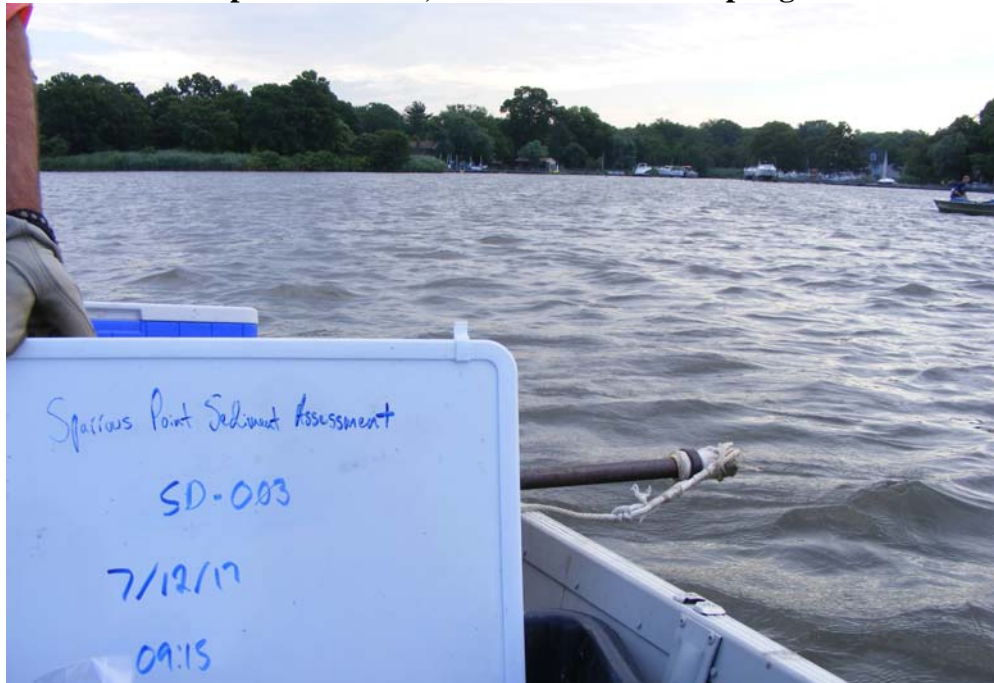 Sparrows Point Sediment Assessment
SD-003
7/12/17
09:15